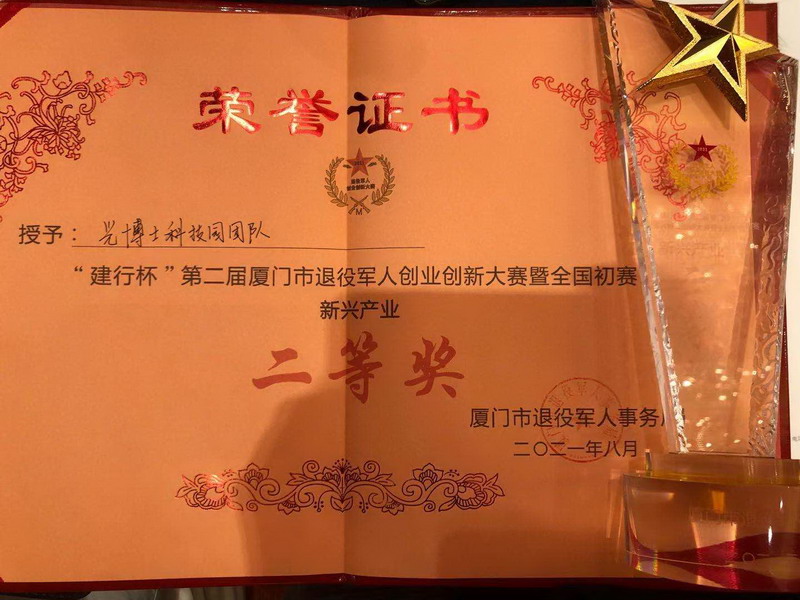 荣誉证书
退役军人
创业创新大赛
授予：兴博士科技园团队
“建行杯”第二届厦门市退役军人创业创新大赛暨全国初赛
新兴产业
二等奖
厦门市退役军人事务局
二〇二一年八月